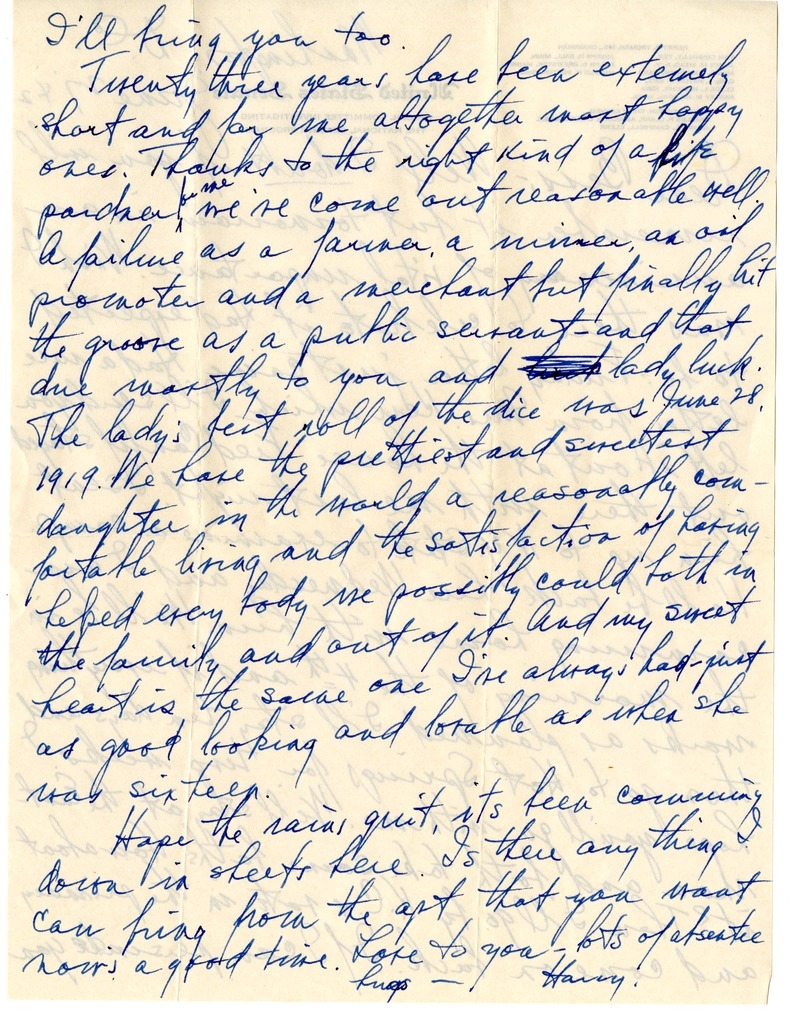 I'll bring you too.
Twenty three years have been extemely
short and for me altogether most happy
ones. Thanks to the right kind of a life
pardner for me we've come out reasonable well.
A failure as a farmer, a minner, an oil
promoter and a merchant but finally hit
the groove as a public servant - and that
due mostly to you and lady luck.
The lady's best roll of the dice was June 28,
1919. We have the prettiest and sweetest
daughter in the world a reasonably com-
fortable living and the satisfaction of having
helped every body we possibly could both in
the family and out of it. And my sweet
heart is the same one I've always had - just
as good looking and lovable as when she
was sixteen.
Hope the rains quit, its been comming
down in sheets here. Is there any thing I
can bring from the apt that you want
now's a good time. Love to you - lots of absentee
hugs - Harry.